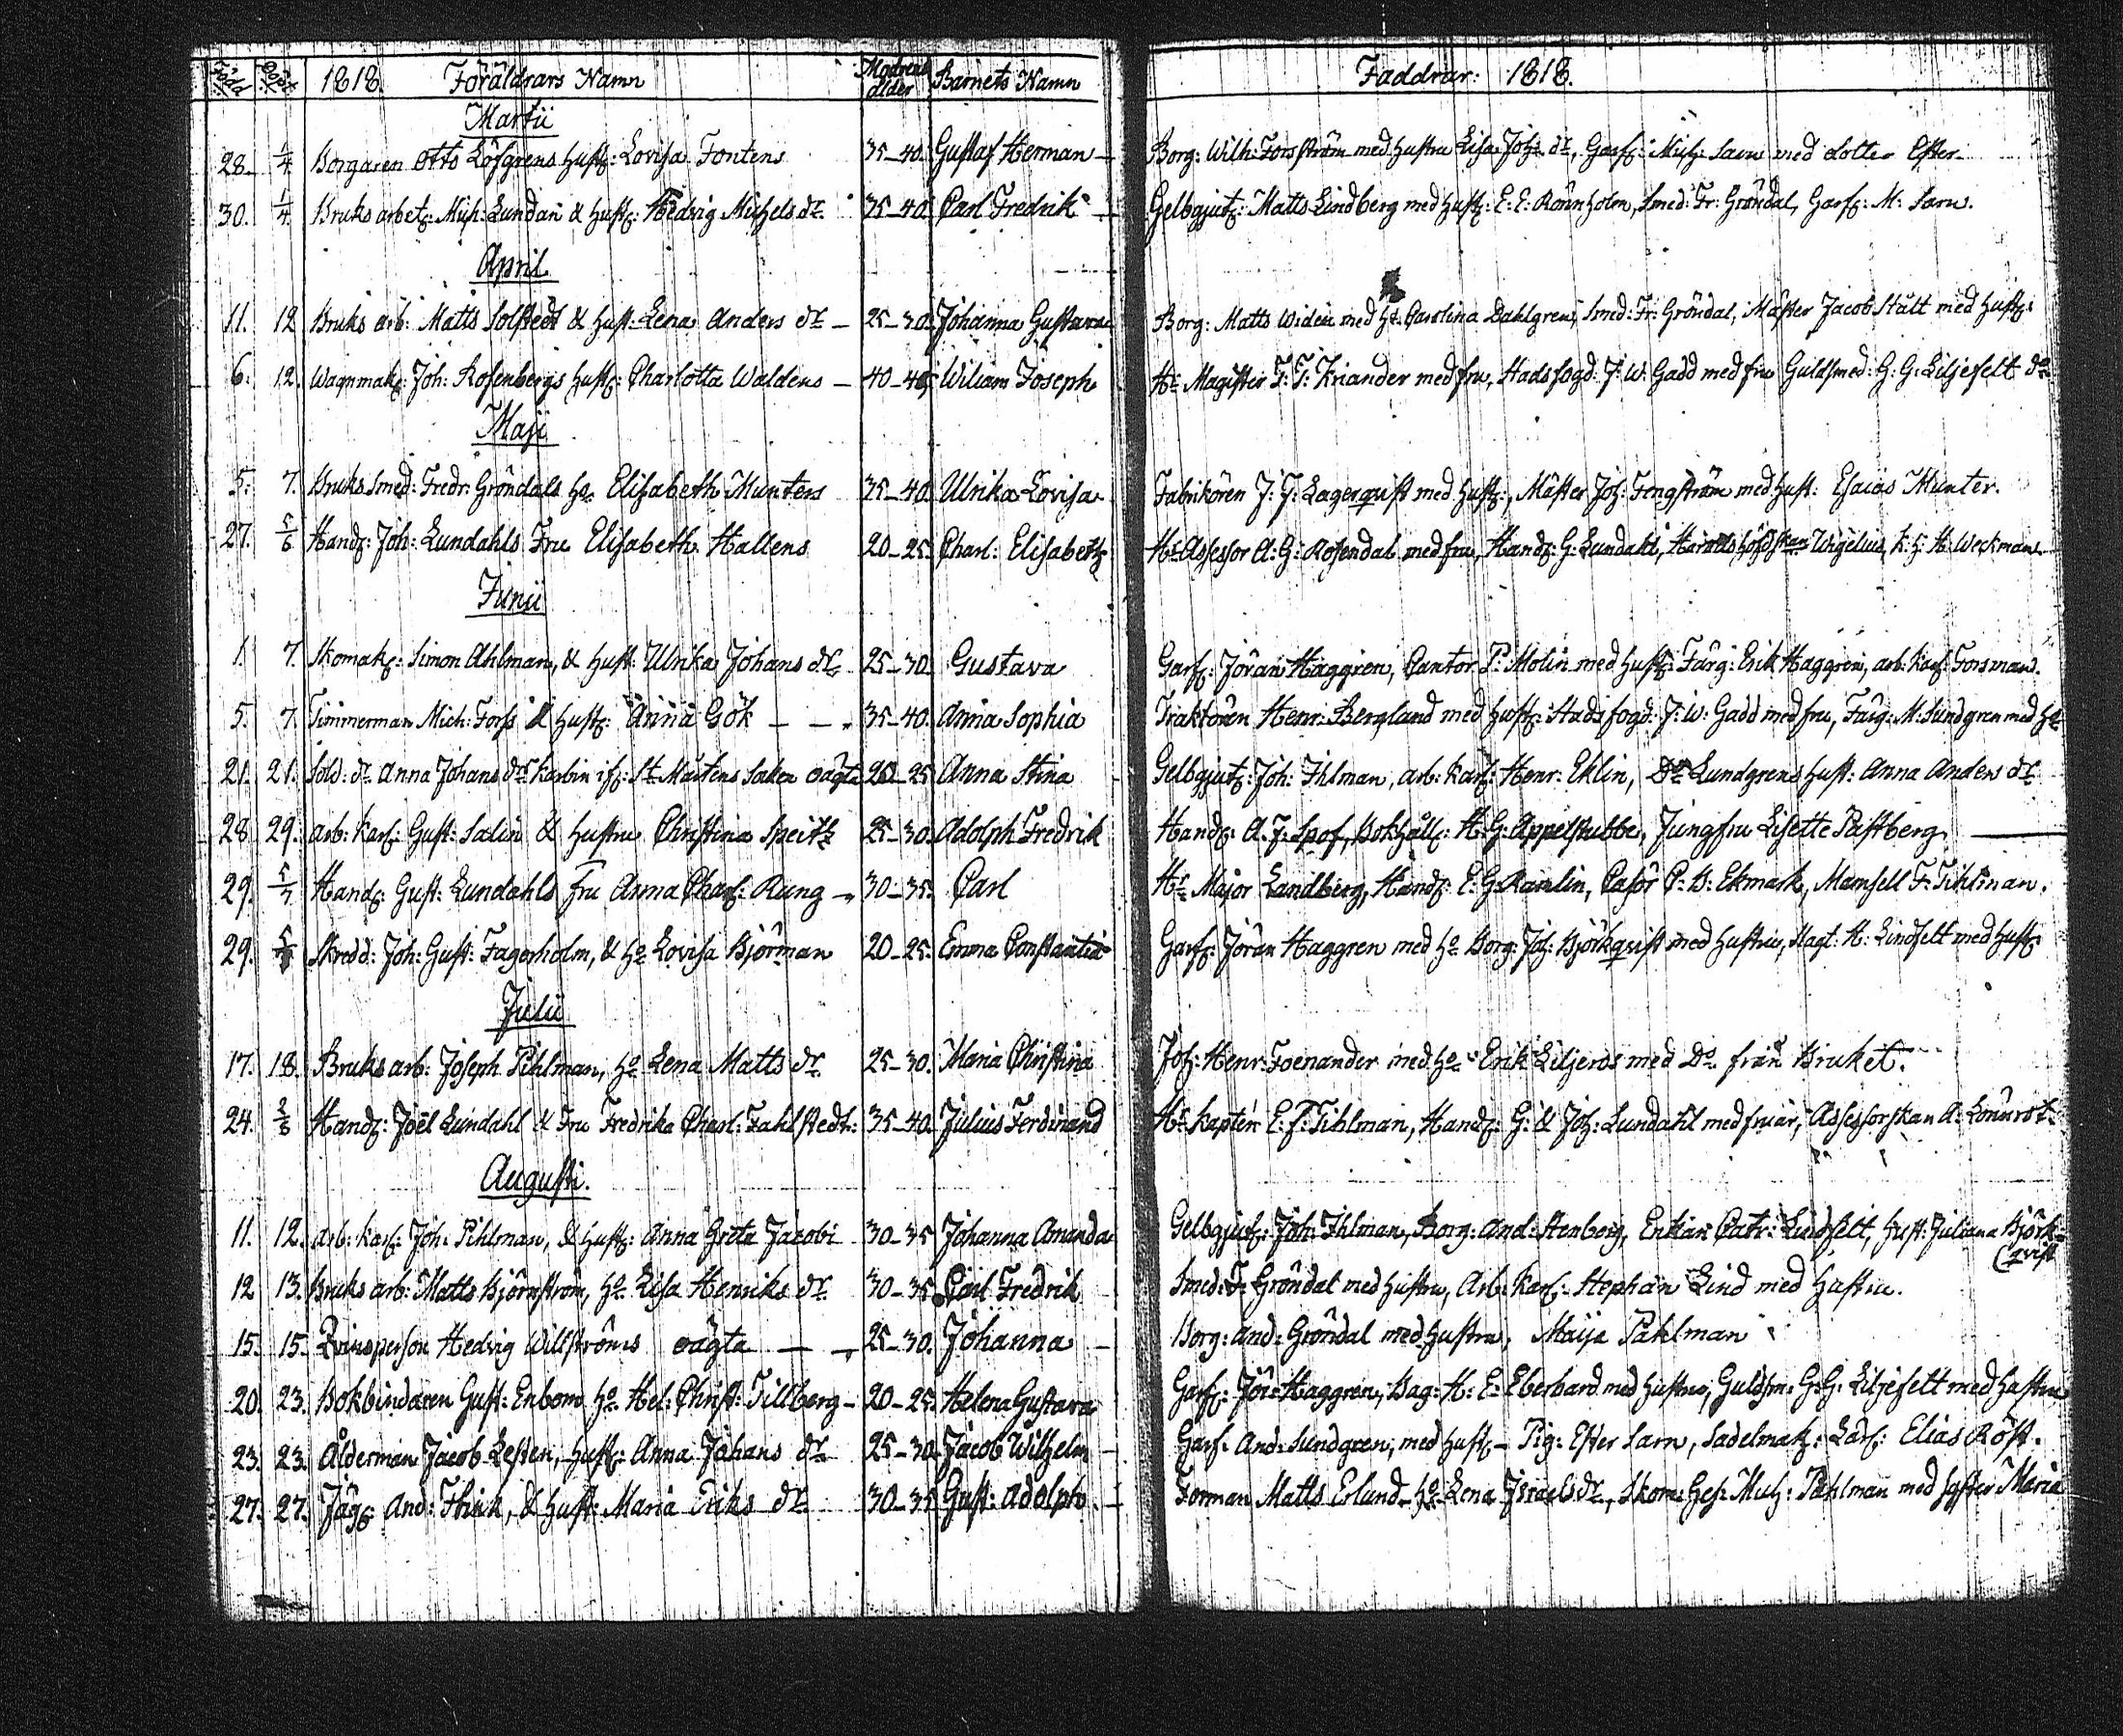 Född Döpt 1818. Föräldrars Namn Modrens ålder Barnets Namn Faddrar: 1818.
Martii
28. 1/4 Borgaren Otto Löfgrens hustr: Lovisa Fontens 35-40. Gustaf Herman Borg: Wilh: Forsström med hustru Lisa Joh: dr, Garf: Mich: Sarn med dotter Ester
30. 1/4 Bruks arbet: Mich: Lundan & hustr: Hedvig Michels dr 35-40. Carl Fredrik Gelbgjut: Matts Lindberg med hustr: E: E: Rönnholm, Smed: Fr: Gröndal, Garf: M: Sarn.
April
11. 12 Bruks arb: Matts Solstedt & hust: Lena Anders dr 25-30. Johanna Gustava Borg: Matts Widén med hu: Carolina Dahlgren, Smed: Fr: Gröndal, Mäster Jacob Stålt med hustr:
6. 12. Wagnmak: Joh: Rosenbergs hustr: Charlotta Waldens 40-45 Wiliam Joseph Hr Magister J: J: Kriander med fru, Stadsfogd: J: W: Gadd med fru Guldsmed: G: G: Liljefelt do
Maji
5. 7. Bruks Smed: Fredr: Gröndals ho Elisabeth Munters 35-40. Ulrika Lovisa Fabrikören J: J: Lagerquist med hustr:, Mäster Joh: Fengström med hust: Esaias Munter.
27. 5/6 Handl: Joh: Lundahls Fru Elisabeth Hallens 20-25. Charl: Elisabeth Hr Assessor A: G: Rosendal med fru, Handl: G: Lundahl, Häradshöfdskan Wigelius, K: H: Weckman
Junii
1. 7. Skomak: Simon Ahlman, & hust: Ulrika Johans dr 25-30. Gustava Garf: Jöran Häggren, Cantor P: Molin med hustr: Färg: Erik Häggren, arb: karl Forsman.
5. 7. Timmerman Mich: Forss & hustr: Anna Gök 35-40. Anna Sophia Traktören Henr: Bergland med hustr: Stadsfogd: J: W: Gadd med fru, Färg: M: Sundgren med ho
21. 21. Sold: dr Anna Johans dr St Mårtens Socken oägta 20-25 Anna Stina Gelbgjut: Joh: Ihlman, arb: karl: Henr: Eklin, Do Lundgrens hust: Anna Anders dr
28 29. arb: karl: Gust: Salin & hustru Christina Speitz 25-30. Adolph Fredrik Handl: A. J: Spof, Bokhåll: H: G: Appelstubbe, Jungfru Lisette Pastberg
29. 5/7 Handl: Gust: Lundahls fru Anna Charl: Rung 30-35. Carl Hr Major Landberg, Handl: E: G: Ramlin, Casör C: B: Ekmark, Mamsell F: Tihlman.
29. 5/7 Skredd: Joh: Gust: Fagerholm, & ho Lovisa Björman 20-25. Emma Constantia Garf: Jöran Häggren med ho Borg: Joh: Björkqvist med hustru, Slagt: H: Lindfelt med hustr:
Julii
17. 18. Bruks arb: Joseph Pihlman, ho Lena Matts dr 25-30. Maria Christina Joh: Henr: Foenander med ho Erik Liljeros med Do från Bruket.
24. 2/8 Handl: Joël Lundahl & Fru Fredrika Charl: Fahlstedt: 35-40. Julius Ferdinand Hr Kapten E: F: Tihlman, Handl: G: & Joh: Lundahl med fruar, Assessorskan A: Lönnrot.
Augusti.
11. 12. arb: karl: Joh: Pihlman, & hustr: Anna Greta Jacobi 30-35 Johanna Amanda Gelbgjut: Joh: Ihlman, Borg: And: Stenberg, Enkan Catr: Lindfelt, hust: Juliana Björk-
(qvist
12 13. Bruks arb: Matts Björnström, ho Lisa Henriks dr 30-35 Carl Fredrik Smed: F: Gröndal med hustru, Arb: karl: Stephan Lind med hustru.
15. 15. Qvinsperson Hedvig Willströms oägta 25-30. Johanna Borg: And: Gröndal med hustru, Maija Pahlman
20. 23. Bokbindaren Gust: Enbom ho Hel: Christ: Tillberg 20-25. Helena Gustava Garf: Jör: Häggren, Bag: H: E: Eberhard med hustru, Guldsm: G: G: Liljefelt med hustru
23. 23. Ålderman Jacob Lessen, hustr: Anna Johans dr 25-30. Jacob Wilhelm Garf: And: Sundgren, med hustr: Pig: Ester Sarn, Sadelmak: Lärl: Elias Röst.
27. 27. Jäg: And: Flink, & hust: Maria Eriks dr 30-35 Gust: Adolph Forman Matts Erlund ho Lena Israels dr, Skom: Ges: Mich: Pahlman med syster Maria